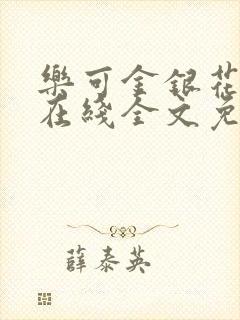 樂可金銀花
在綫全文免
薛泰英